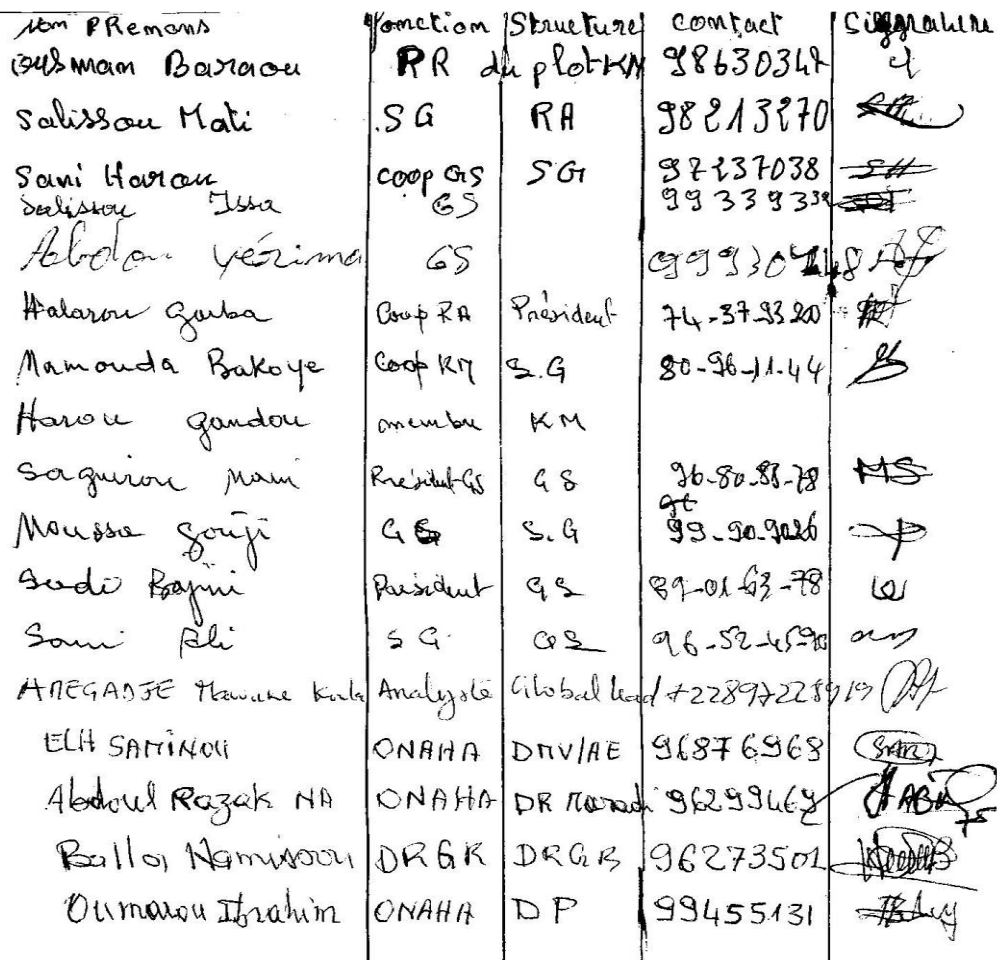 Nom PRemons Fonction Structure contact Signature
Ousman Baraou RR du plot KM 98630347
Salissou Mati SG RA 98213270
Sani Harou coop GS SG 97137038 SH
Salissou Issa GS 99339339
Abdou yérima GS
Halarou Garba Coop RA Président 74-37-93 20
Mamouda Bakoye Coop KM S.G 80-96-11-44
Harou gandou membre KM
Saguirou Mani Président GS GS 96-80-88-78 MS
Moussa Gouji GS S.G 99-90-9026
Sadi Président GS 89-01-63-78
Sani Ali SG GS 96-52-45-90
AMEGADJE Analyste Global lead +22897228919
ELH SAMINOU ONAHA DMV/AE 96876968
Abdoul Razak NA ONAHA DR Maradi 96299469
Balla Namissou DRGR DRGR 96273501
Oumarou Ibrahim ONAHA DP 99455131